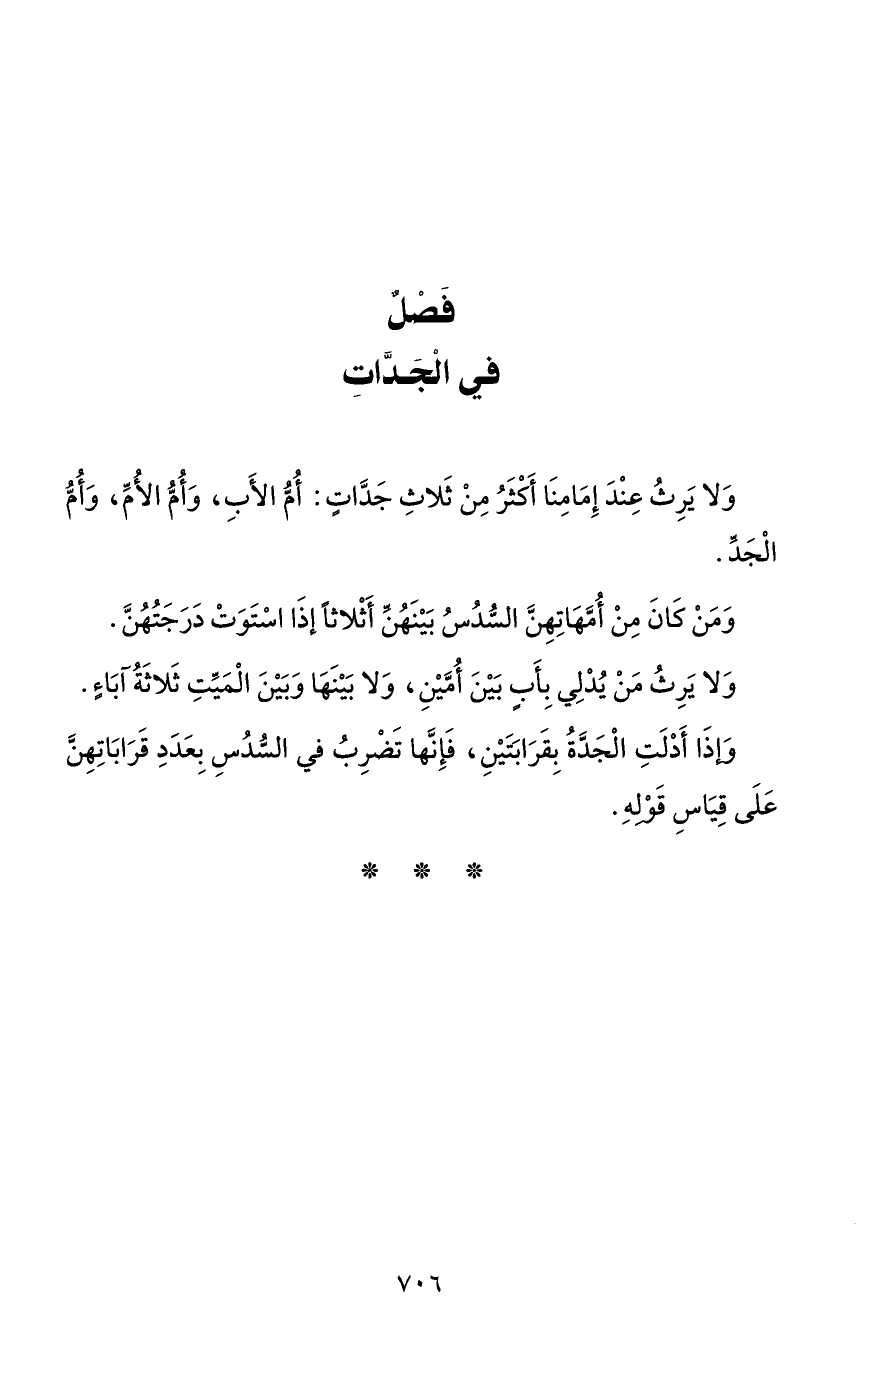 فَصْلٌ
في الْجَـدَّاتِ
وَلا يَرِثُ عِنْدَ إِمَامِنَا أَكْثَرُ مِنْ ثَلاثِ جَدَّاتٍ: أُمُّ الأَبِ، وَأُمُّ الأُمِّ، وَأُمُّ
الْجَدِّ.
وَمَنْ كَانَ مِنْ أُمَّهَاتِهِنَّ السُّدُسُ بَيْنَهُنِّ أَثْلاثاً إذَا اسْتَوَتْ دَرَجَتُهُنَّ.
وَلا يَرِثُ مَنْ يُدْلِي بِأَبٍ بَيْنَ أُمَّيْنِ، وَلا بَيْنَهَا وَبَيْنَ الْمَيِّتِ ثَلاثَةُ آبَاءٍ.
وَإذَا أَدْلَتِ الْجَدَّةُ بِقَرَابَتَيْنِ، فَإِنَّها تَضْرِبُ في السُّدُسِ بِعَدَدِ قَرَابَاتِهِنَّ
عَلَى قِيَاسِ قَوْلِهِ.
* * *
٧٠٦